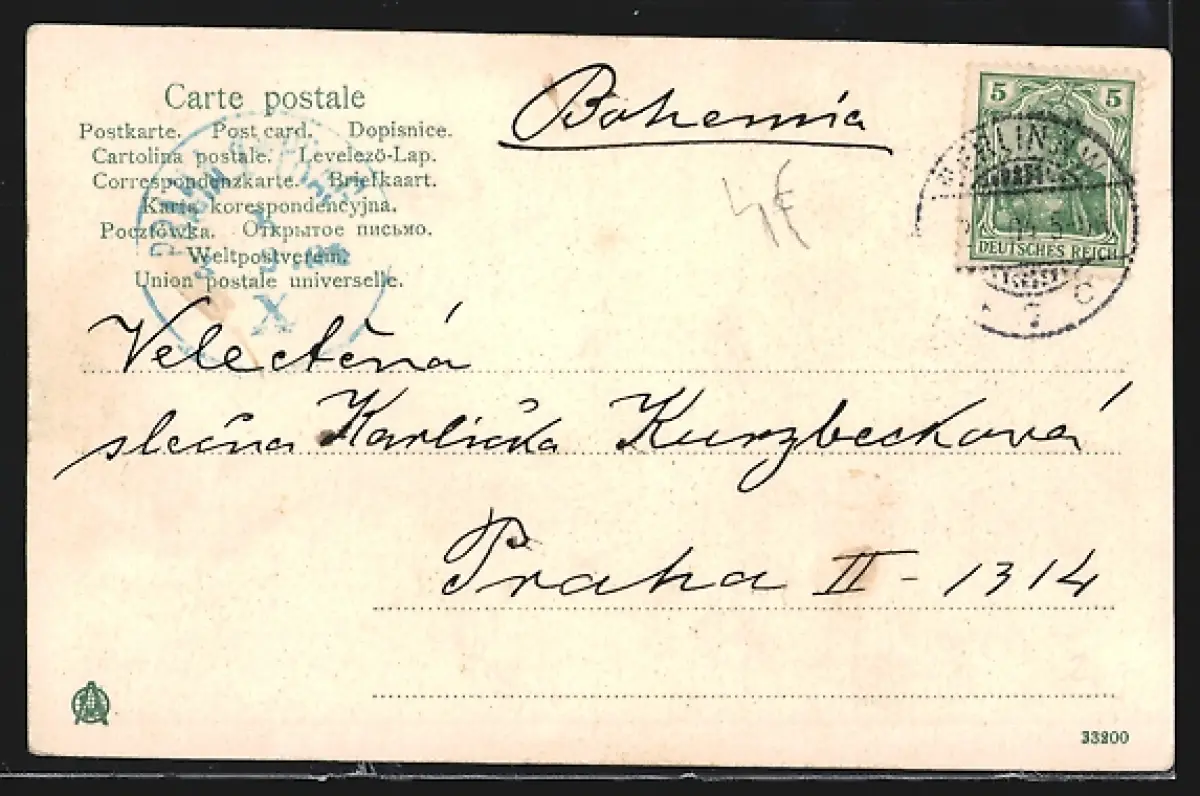 Carte postale
Postkarte. Post card. Dopisnice.
Cartolina postale. Levelező-Lap.
Correspondenzkarte. Briefkaart.
Karta korespondencyjna.
Pocztówka. Открытое письмо.
Weltpostverein.
Union postale universelle.
X
Bohemia
4€
5 5
BERLIN
DEUTSCHES REICH
Velectěná
slečna Karlička Kurzbecková
Praha II - 1314
33200